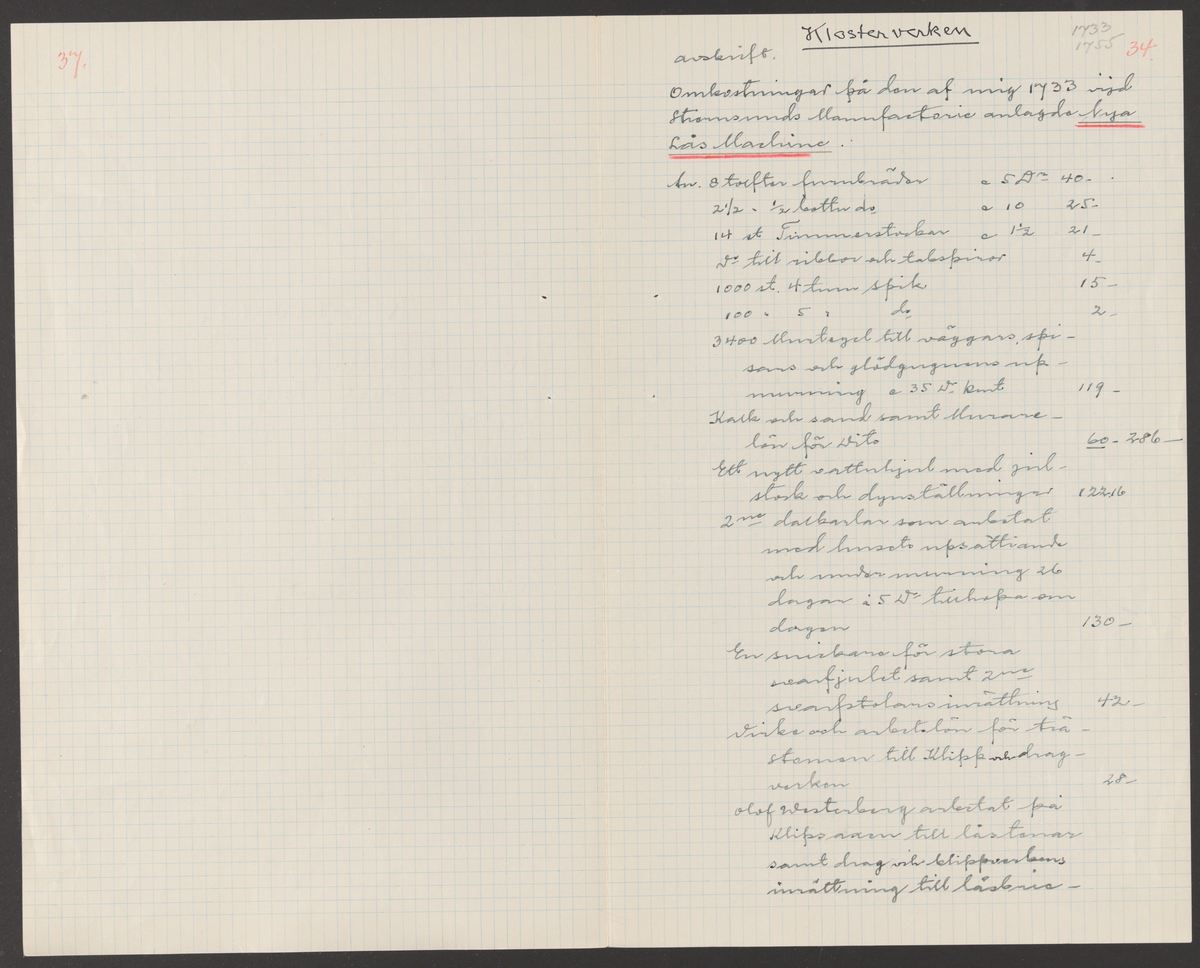 37.
Klosterverken
1733
1755
34.
avskrift.
Omkostningar på den af mig 1733 vijd
Stromsunds Mannfactorie anlagde Nya
Lås Machine.
An. 8 tolfter furubräder a 5 Dr 40-
2 1/2 " 1/2 bottn do a 10 25-
14 st Timmerstockar a 1 1/2 21-
Dr till ribbor och takspiror 4-
1000 st. 4 tum spik 15-
100 " 5 " do 2-
3400 Murtegel till väggars, spi-
sars och glödgugnens up-
murning a 35 Dr kmt 119-
Kalk och sand samt Murare-
lön för Dito 60- 286-
Ett nytt vattuhjul med jul-
stock och dynställningar 122.16
2ne dalkarlar som arbetat
med husets upsättiande
och under murning 26
dagar à 5 Dr tillhopa om
dagen 130-
En snickare för stora
svarfjulet samt 2ne
svarfstolars inrättning 42-
Virke och arbetslön för trä-
stommen till Klipp och drag-
verken 28-
Olof Westerberg arbetat på
Klipsaxen till låstenar
samt drag och klippverkens
inrättning till låsbric-